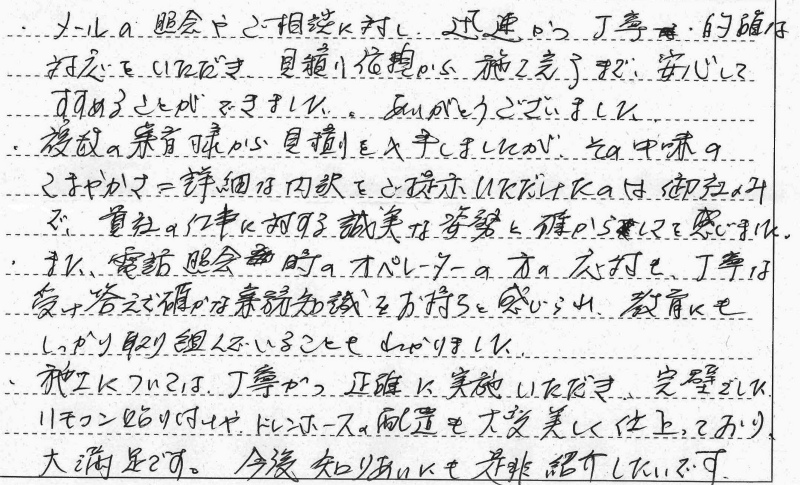 ・メールの照会やご相談に対し、迅速かつ丁寧・的確な
対応をいただき、見積り依頼から施工完了まで、安心して
すすめることができました。ありがとうございました。
・複数の業者様から見積りを入手しましたが、その中味の
こまやかさ=詳細な内訳をご提示いただけたのは御社のみ
で、貴社の仕事に対する誠実な姿勢と確からしさを感じました。
・また、電話照会時のオペレーターの方の応対も、丁寧な
受け答えで確かな業務知識をお持ちと感じられ、教育にも
しっかり取り組んでいることもわかりました。
・施工については、丁寧かつ正確に実施いただき、完璧でした。
リモコン貼り付けや、ドレンホースの配置も大変美しく仕上っており、
大満足です。今後知りあいにも是非紹介したいです。